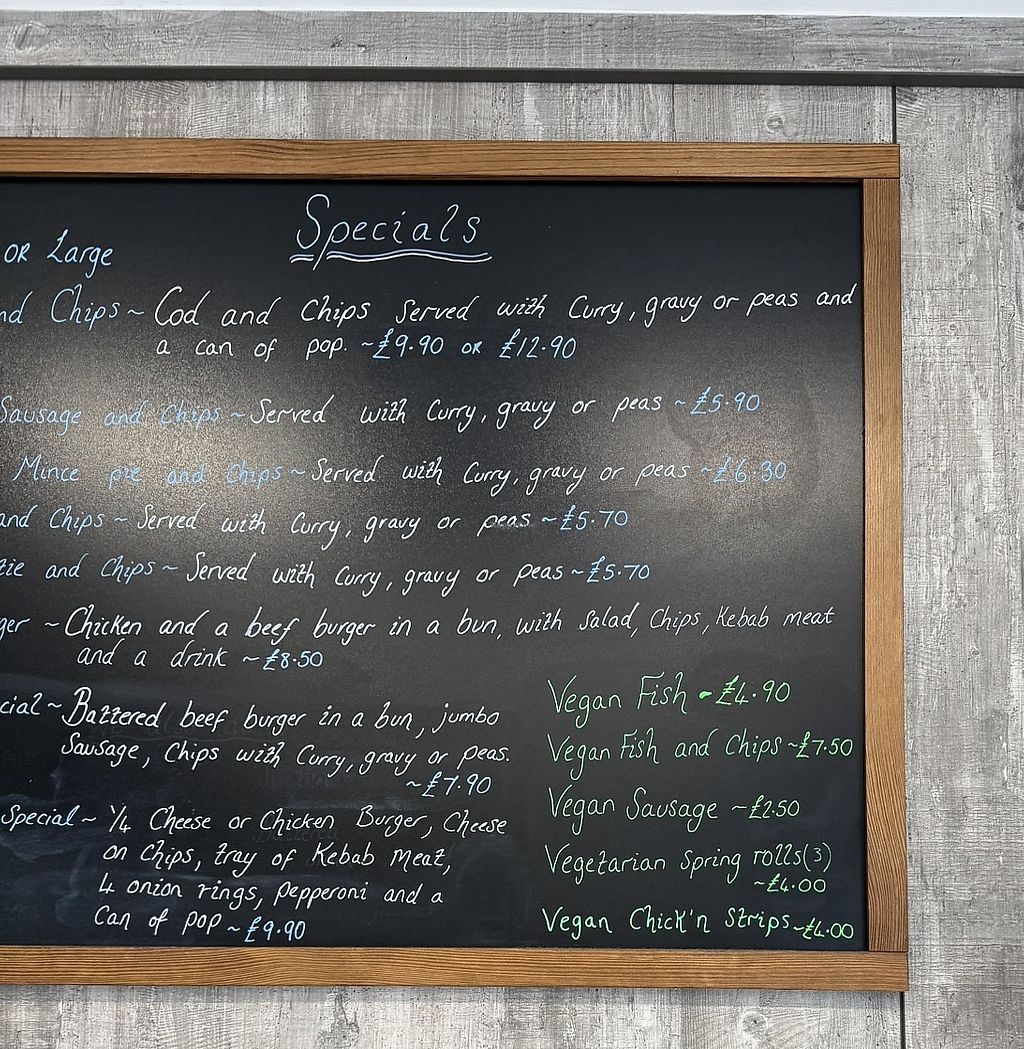 Specials
OR Large
Chips ~ Cod and Chips Served with Curry, gravy or peas and
a can of pop. ~ £9.90 OR £12.90
Sausage and Chips ~ Served with Curry, gravy or peas ~ £5.90
Mince pie and Chips ~ Served with Curry, gravy or peas ~ £6.30
and Chips ~ Served with Curry, gravy or peas ~ £5.70
and Chips ~ Served with Curry, gravy or peas ~ £5.70
~ Chicken and a beef burger in a bun, with Salad, Chips, Kebab meat
and a drink ~ £8.50
~ Battered beef burger in a bun, jumbo
Sausage, Chips with Curry, gravy or peas.
~ £7.90
Special ~ 1/4 Cheese or Chicken Burger, Cheese
on Chips, tray of Kebab Meat,
4 onion rings, Pepperoni and a
Can of pop ~ £9.90
Vegan Fish - £4.90
Vegan Fish and Chips ~ £7.50
Vegan Sausage ~ £2.50
Vegetarian Spring rolls (3)
~ £4.00
Vegan Chick'n Strips ~ £4.00